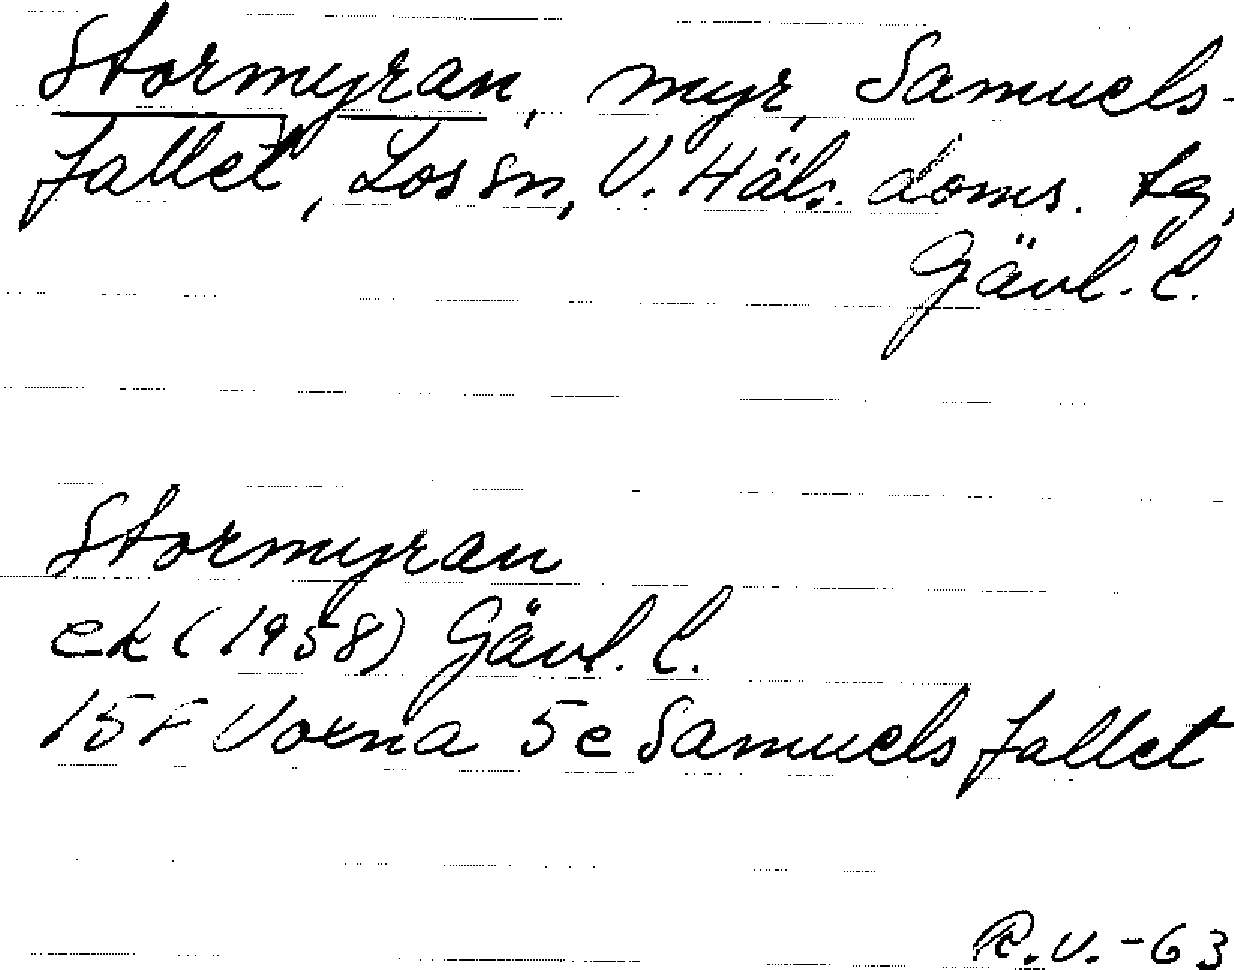 Stormyran, myr, Samuels-
fallet, Los sn, V. Häls. doms. tg,
Gävl. l.
Stormyran
ek (1958) Gävl. l.
15F Voxna 5e Samuelsfallet
R.V.-63